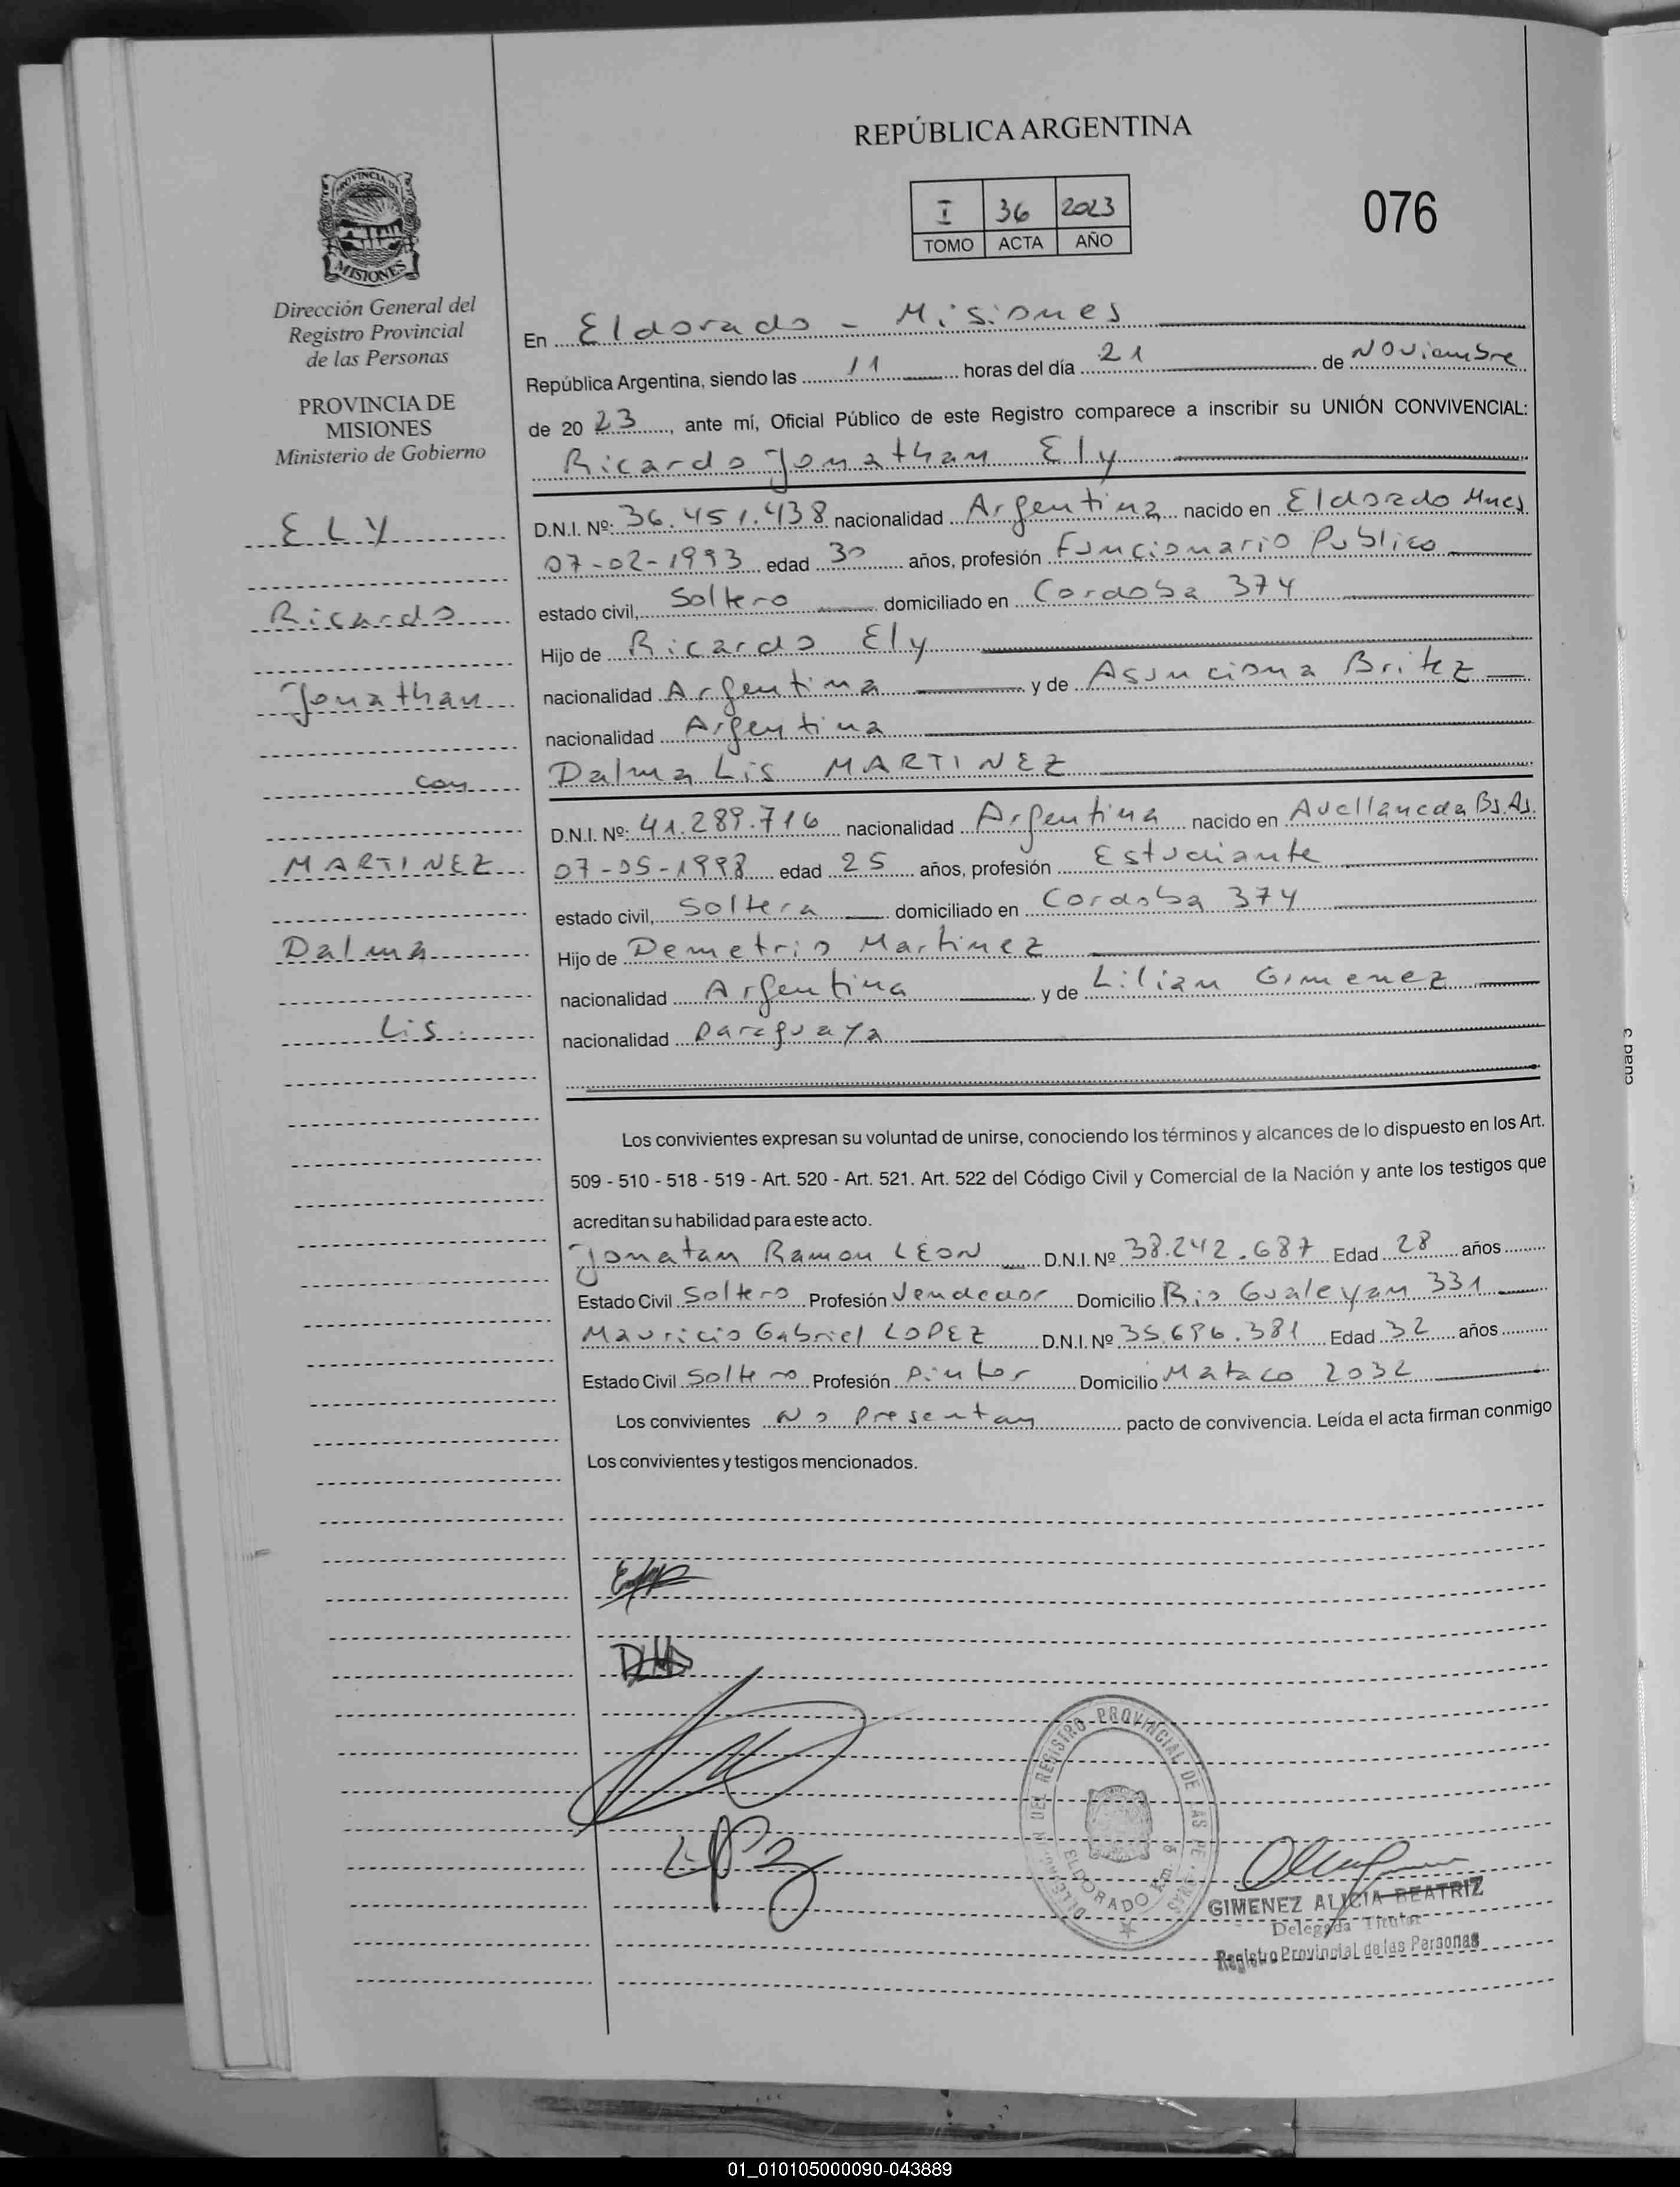 REPÚBLICA ARGENTINA
I 36 2023
TOMO ACTA AÑO
076
PROVINCIA DE
MISIONES
Dirección General del
Registro Provincial
de las Personas
PROVINCIA DE
MISIONES
Ministerio de Gobierno
ELY
Ricardo
Jonathan
con
MARTINEZ
Dalma
Lis.
En Eldorado - Misiones
República Argentina, siendo las 11 horas del día 21 de Noviembre
de 2023, ante mí, Oficial Público de este Registro comparece a inscribir su UNIÓN CONVIVENCIAL:
Ricardo Jonathan Ely
D.N.I. Nº: 36.451.438 nacionalidad Argentina nacido en Eldorado Mnes
07-02-1993 edad 30 años, profesión Funcionario Publico
estado civil, Soltero domiciliado en Cordoba 374
Hijo de Ricardo Ely
nacionalidad Argentina y de Asunciona Britez
nacionalidad Argentina
Dalma Lis MARTINEZ
D.N.I. Nº: 41.289.716 nacionalidad Argentina nacido en Avellaneda Bs.As.
07-05-1998 edad 25 años, profesión Estudiante
estado civil, Soltera domiciliado en Cordoba 374
Hijo de Demetrio Martinez
nacionalidad Argentina y de Lilian Gimenez
nacionalidad paraguaya
Los convivientes expresan su voluntad de unirse, conociendo los términos y alcances de lo dispuesto en los Art.
509 - 510 - 518 - 519 - Art. 520 - Art. 521. Art. 522 del Código Civil y Comercial de la Nación y ante los testigos que
acreditan su habilidad para este acto.
Jonatan Ramon LEON D.N.I. Nº 38.242.687 Edad 28 años
Estado Civil Soltero Profesión Vendedor Domicilio Rio Gualeyan 331
Mauricio Gabriel LOPEZ D.N.I. Nº 35.696.381 Edad 32 años
Estado Civil Soltero Profesión Pintor Domicilio Mataco 2032
Los convivientes No presentan pacto de convivencia. Leída el acta firman conmigo
Los convivientes y testigos mencionados.
DEL REGISTRO PROVINCIAL DE LAS
ELDORADO Km
GIMENEZ ALICIA BEATRIZ
Delegada Titular
Registro Provincial de las Personas
cuad 3
01_010105000090-043889